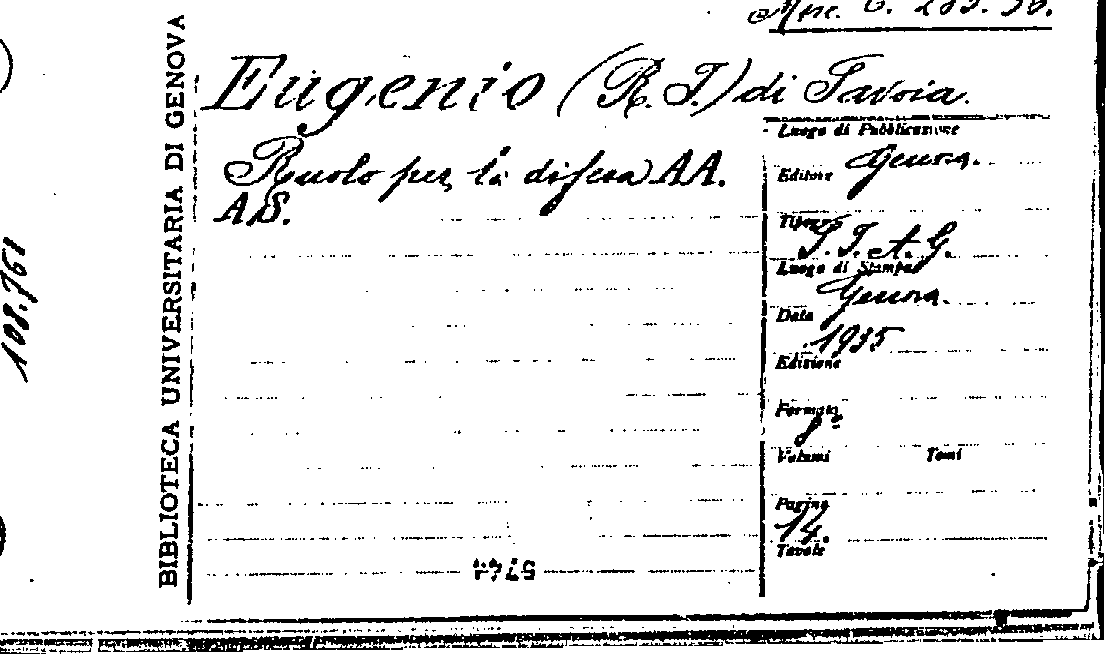 Misc. C. 283. 30.
Eugenio (R. T.) di Savoia.
Ruolo per la difesa AA.
AS.
Luogo di Pubblicazione
Genova.
Editore
Tipografo
S. I. A. G.
Luogo di Stampa
Genova.
Data
1935
Edizione
Formato
8°
Volumi Tomi
Pagine
14.
Tavole
BIBLIOTECA UNIVERSITARIA DI GENOVA
108.761